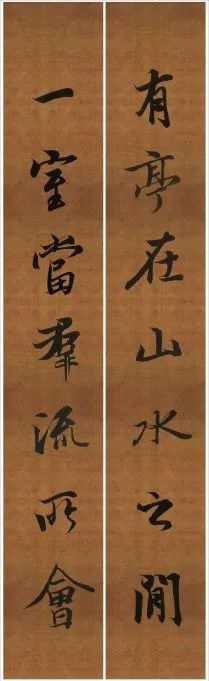 有亭在山水之閒
一室當羣流所會